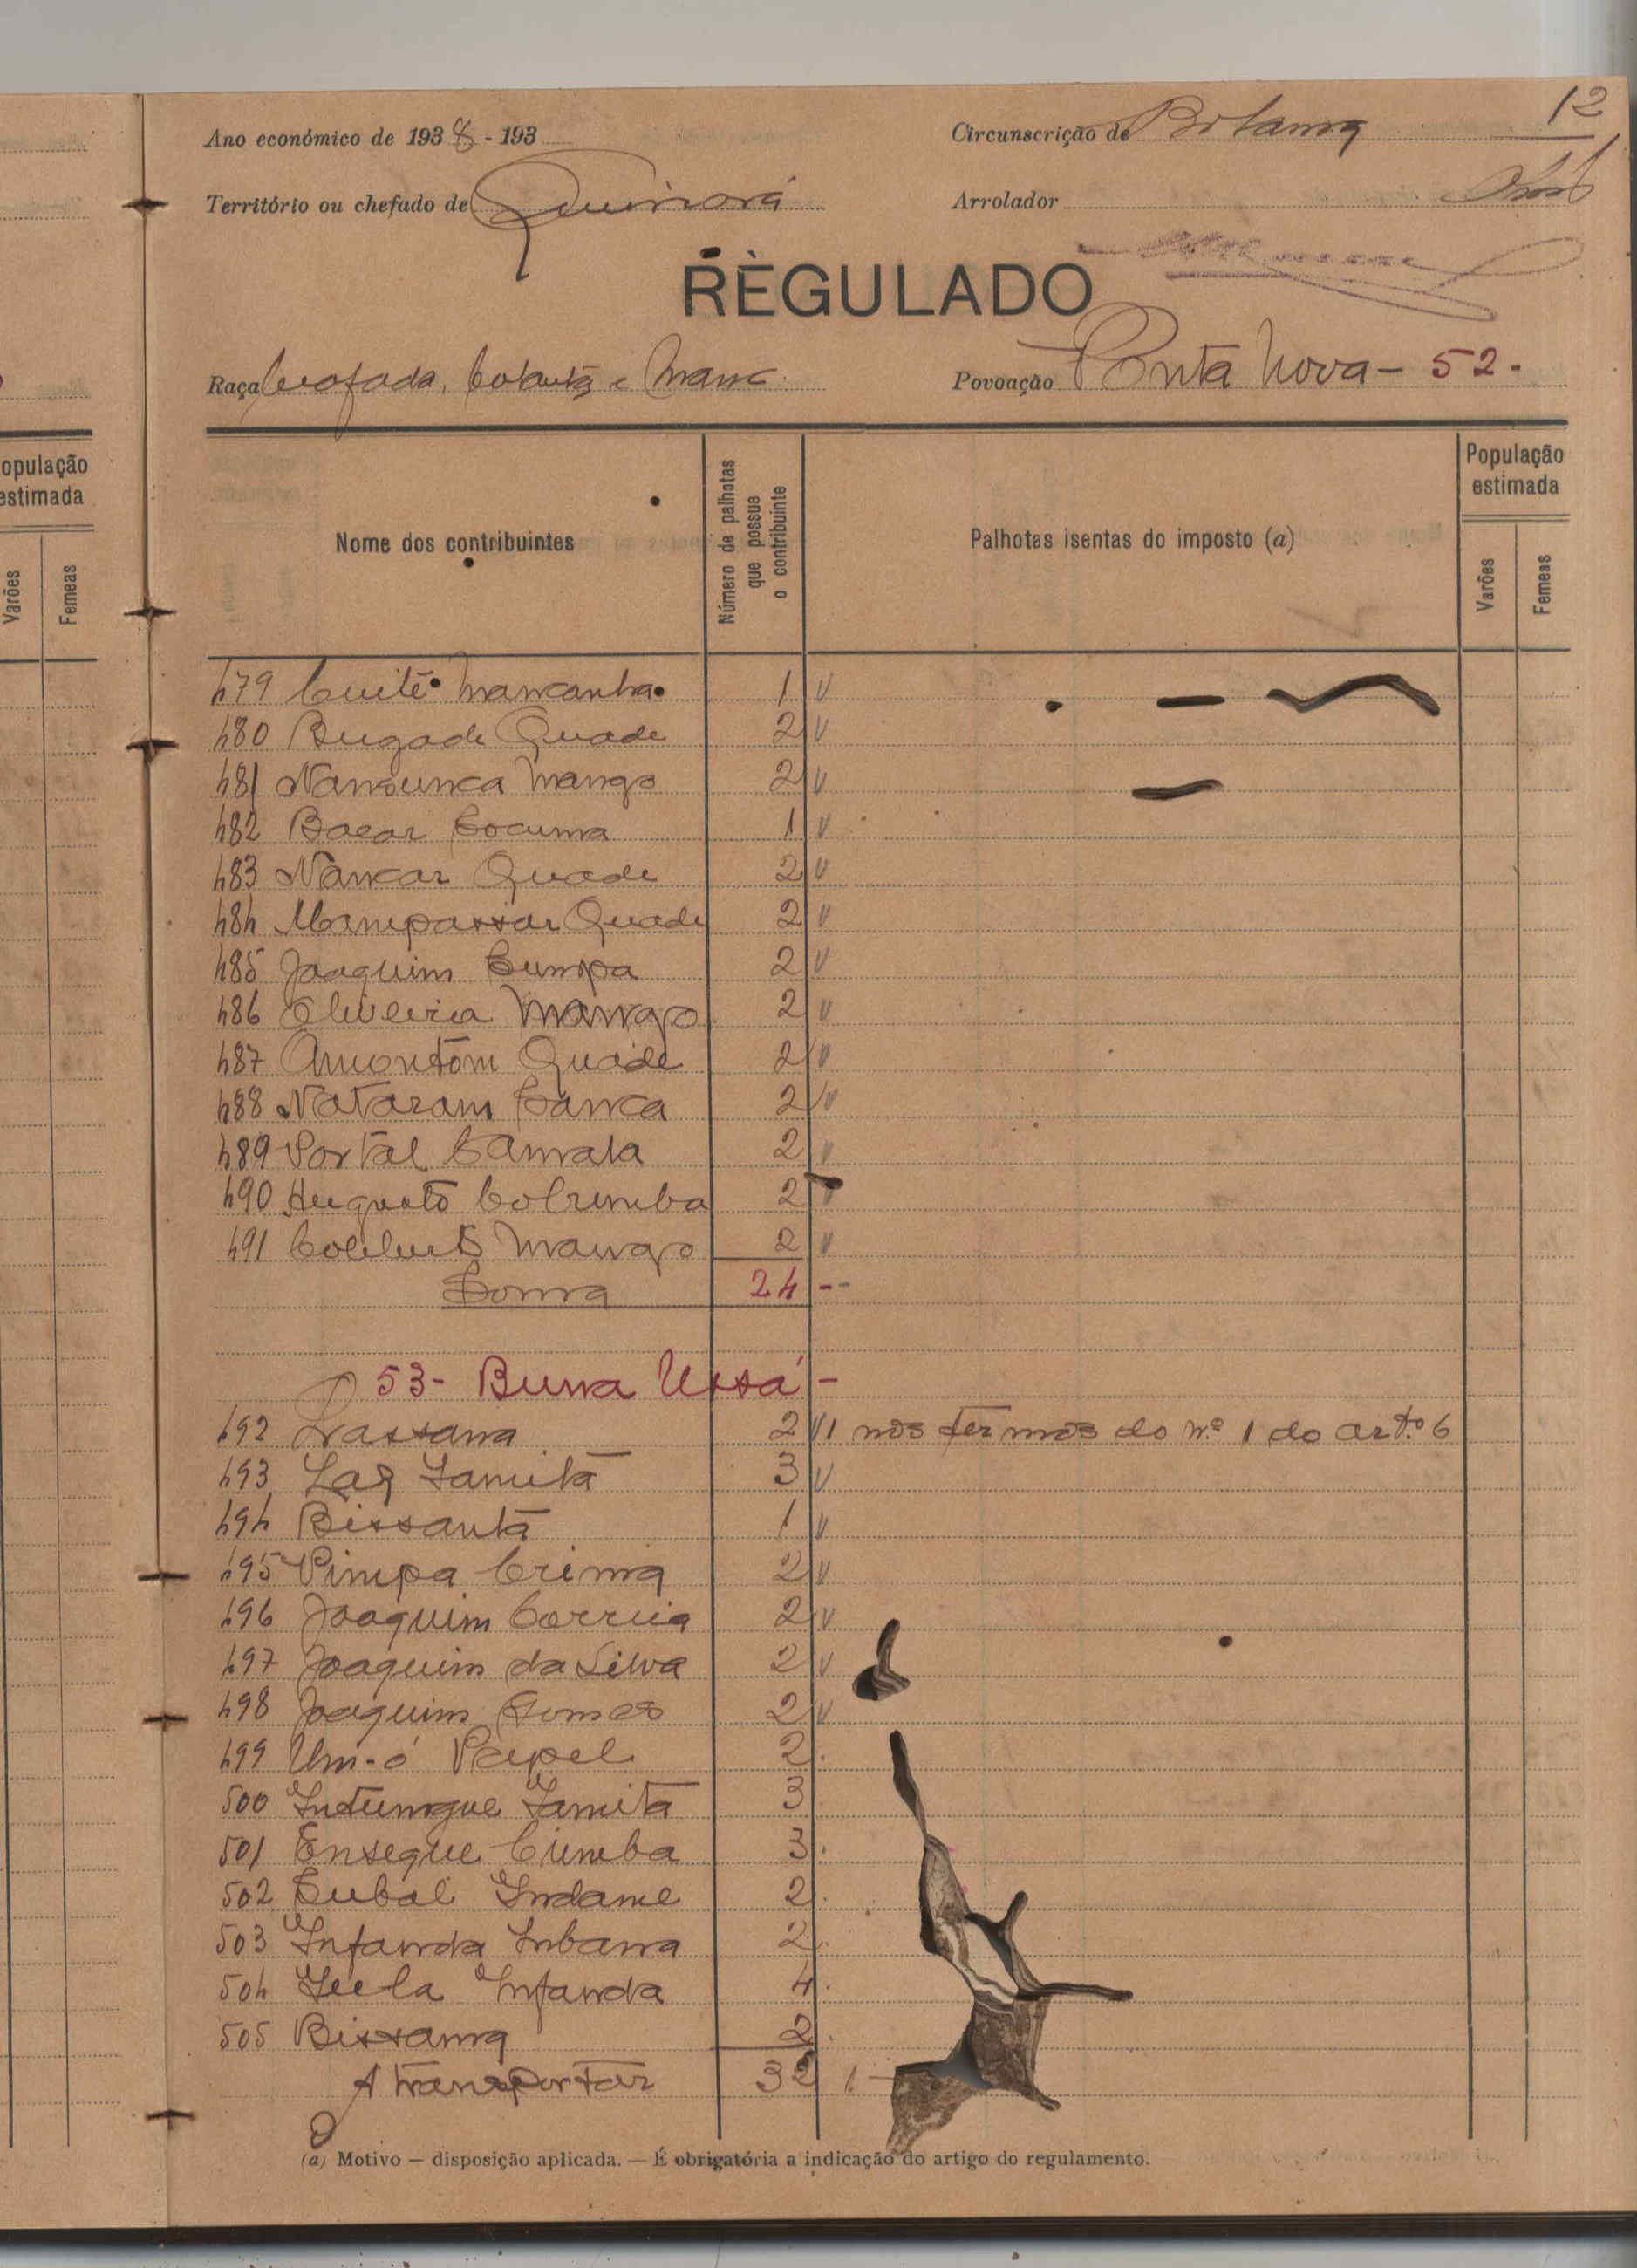 12
Ano económico de 1938 - 193
Circunscrição de Bolama
Território ou chefado de Quinará
Arrolador
RÈGULADO
Raça Beafada, e Manc.
Povoação Ponta Nova - 52 -
opulação
estimada
Varões
Femeas
Nome dos contribuintes
Número de palhotas
que possue
o contribuinte
Palhotas isentas do imposto (a)
População
estimada
Varões
Femeas
479 Cuité Mancanha 1
480 Bugade Quade 2
481 Nansunca Mango 2
482 Bacar Cocuma 1
483 Nancar Quade 2
484 Mampassar Quade 2
485 Joaquim Cumpa 2
486 Oliveira Mango 2
487 Amontom Quade 2
488 Nataram Canca 2
489 Portal Camala 2
490 Augusto Columba 2
491 Mango 2
Soma 24 --
53 - Buna Ussá -
492 Lassana 2 1 nos termos do nº 1 do artº 6
493 Laq Iamitá 3
494 Bissantã 1
495 Pimpa Crima 2
496 Joaquim Correia 2
497 Joaquim da Silva 2
498 Joaquim Gomes 2
499 Um-ó Papel 2
500 Indungue Iamita 3
501 Ensegue Cumba 3
502 Cubal Indame 2
503 Infanda Imbana 2
504 Iula Infanda 4
505 Bissama 2
A transportar 32 1
(a) Motivo — disposição aplicada. — É obrigatória a indicação do artigo do regulamento.